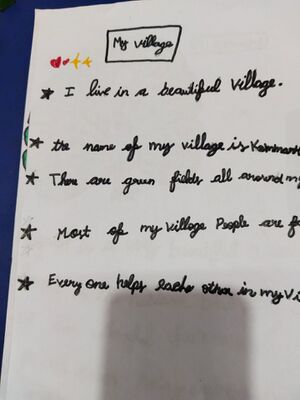 My Village
I live in a beautiful Village.
the name of my village is
There are green fields all around
Most of my Village People are
Every one helps each other in my